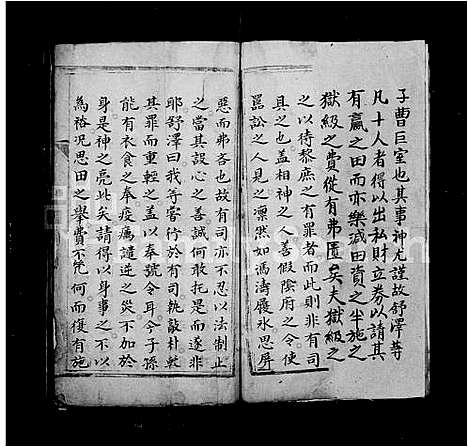 子曹巨室也其事神尤謹故舒澤等
凡十人者得以出私財立券以請其
有贏之田而亦樂減田資之半施之
獄級之費從有弗匱矣夫獄級之
具之也蓋相神之人善假陰府之令使
之以待黎庶之有罪者而此則非有司
嚚訟之人見之凜然如馮濤履氷思屏
惡而弗吝也故有司亦不忍以法制止
之當其誤心之善誠何敢托是而遂非
耶舒澤曰我等嘗行於有司執敲朴乾
其罪而重輕之蓋以奉號令耳今子孫
能有衣食之奉疫癘譴逆之災不加於
身是神之亮此矣請得以身事之不以
為格况思田之舉費不凭何而復有施